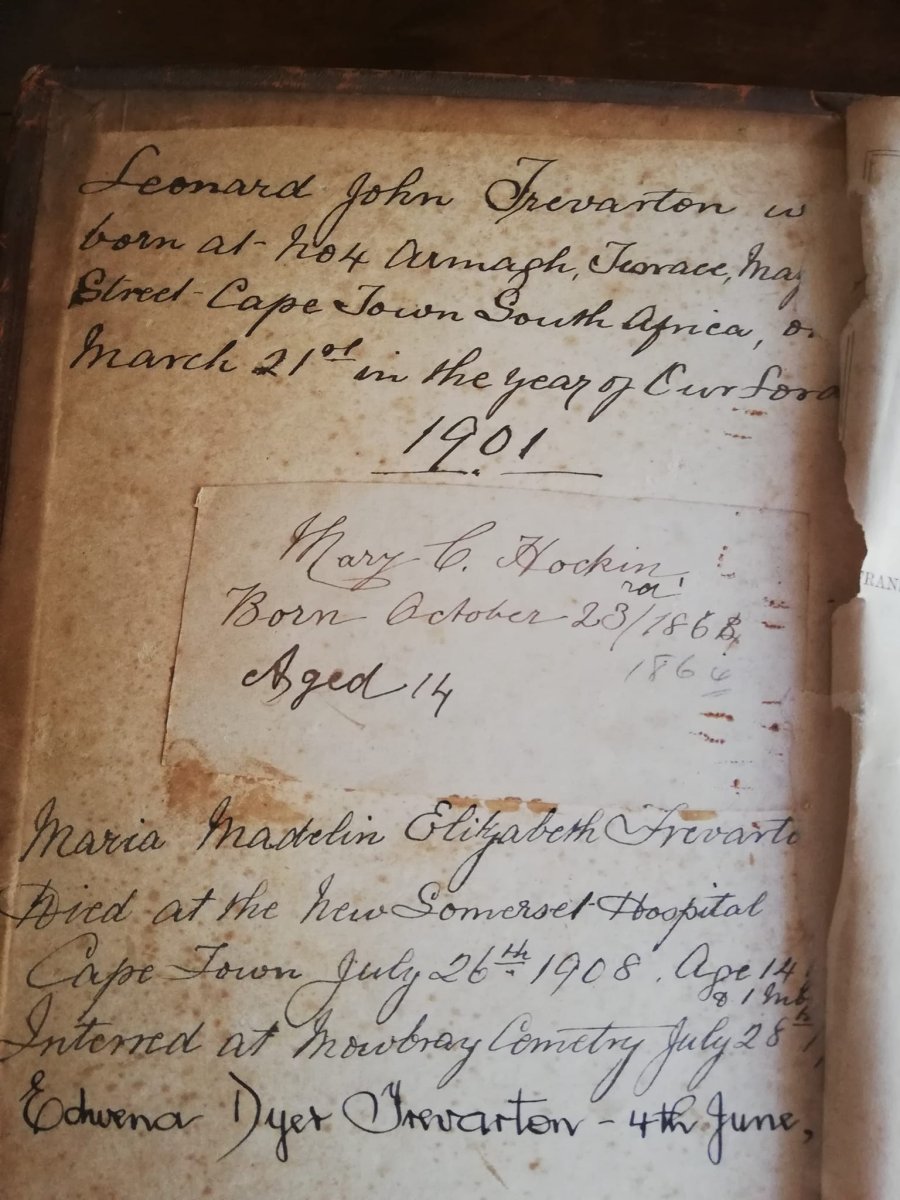 Leonard John Trevarton
born at No 4 Armagh, Terrace,
Street Cape Town South Africa,
March 21st in the year of Our Lord
1901
Mary C. Hockin
Born October 23rd/186
1864
Aged 14
Maria Madelin Elitzabeth Trevarto
Died at the New Somerset Hospital
Cape Town July 26th 1908. Age 14
& 1 Mth
Interred at Mowbray Cemetry July 28th
Edwena Dyer Trevarton - 4th June,